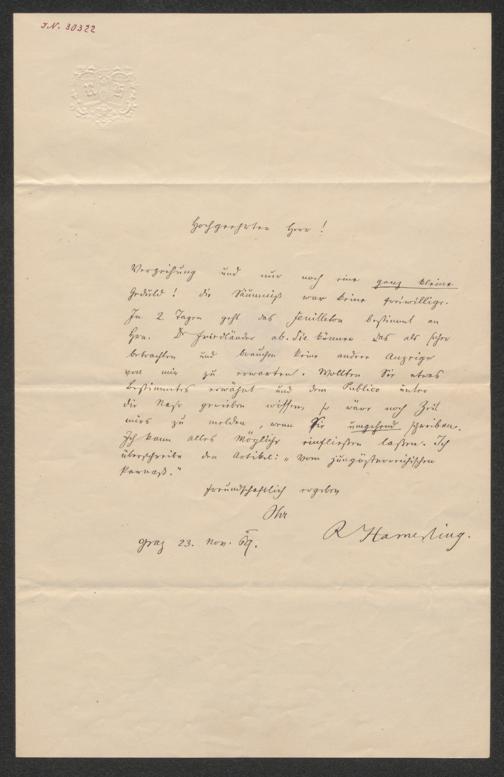 J.N. 30322
Hochgeehrter Herr!
Verzeihung und nur noch eine ganz kleine
Geduld! die Säumniß war keine freiwillige.
In 2 Tagen geht das Feuilleton bestimmt an
Hrn. Dr Friedländer ab. Sie können das als sicher
betrachten und brauchen keine andere Anzeige
von mir zu erwarten. Wollten Sie etwas
Bestimmtes erwähnt und dem Publico unter
die Nase gerieben wissen, so wäre noch Zeit
mirs zu melden, wenn Sie umgehend schreiben.
Ich kann alles Mögliche einfließen lassen. Ich
überschreibe den Artikel: „Vom jungösterreichischen
Parnaß."
Freundschaftlich ergeben
Ihr
R Hamerling.
Graz 23. Nov. 67.